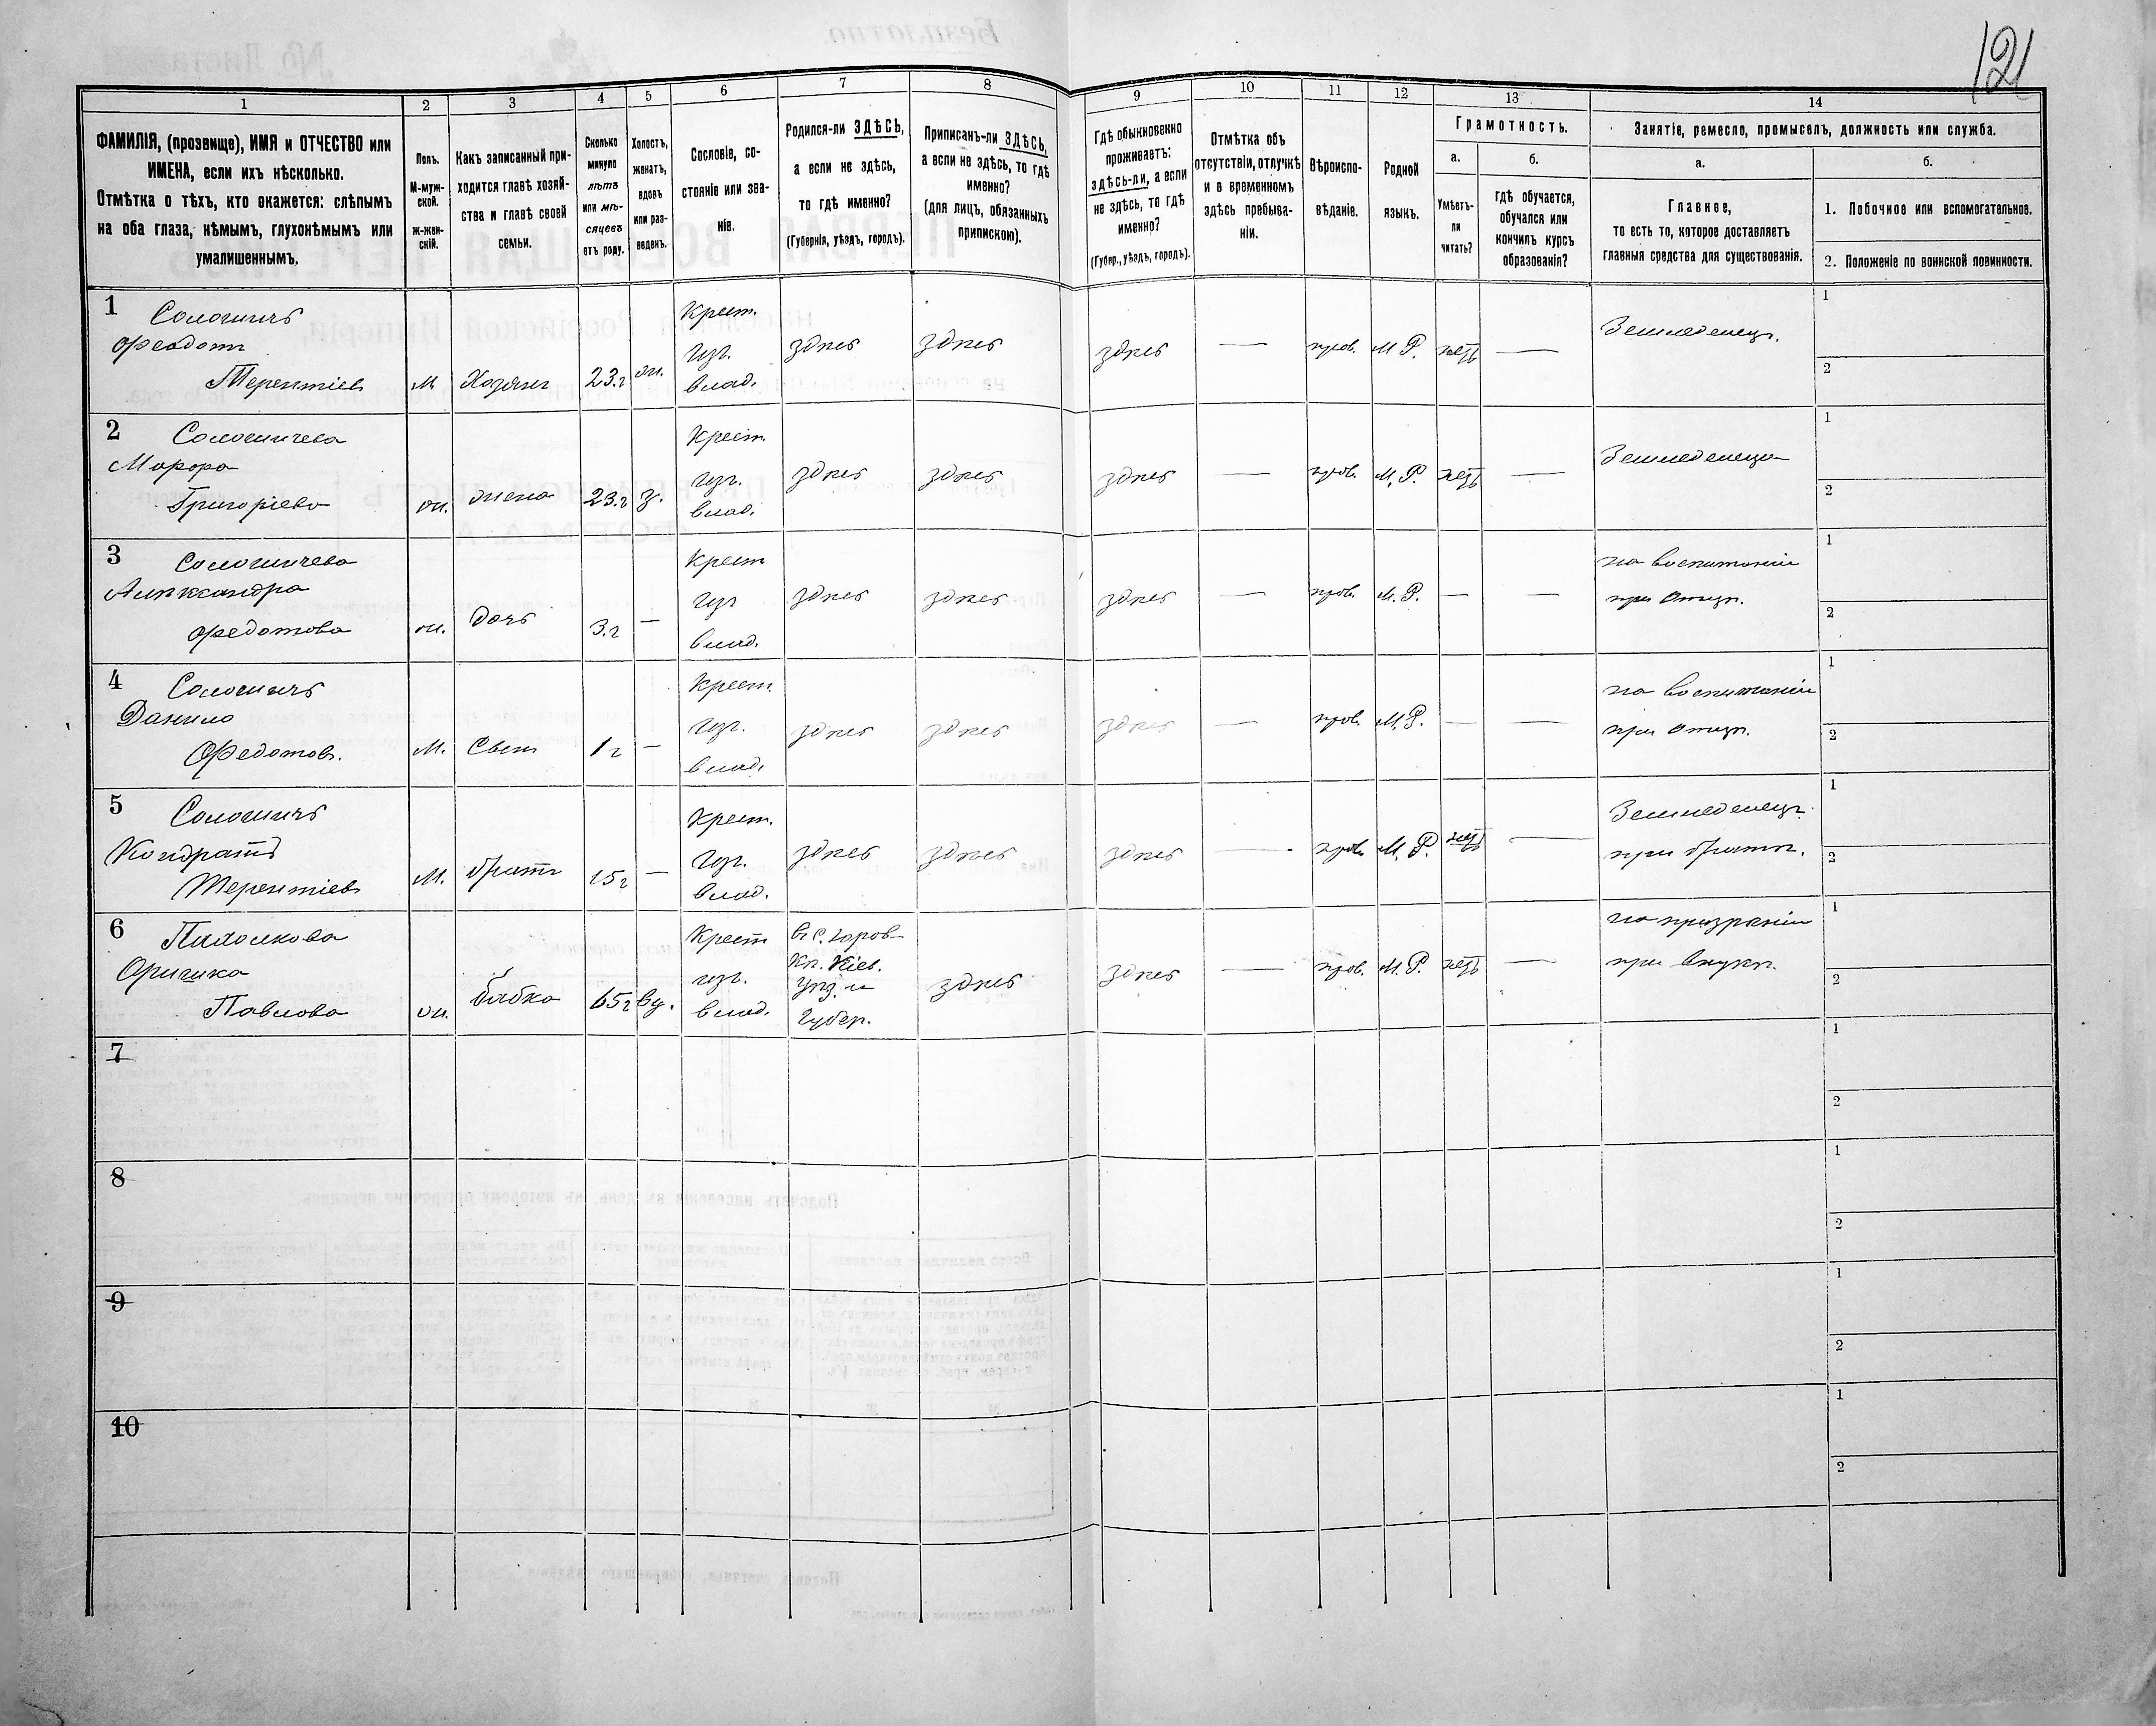 121
1 2 3 4 5 6 7 8 9 10 11 12 13 14
ФАМИЛІЯ, (прозвище), ИМЯ и ОТЧЕСТВО или
ИМЕНА, если ихъ нѣсколько.
Отмѣтка о тѣхъ, кто окажется: слѣпымъ
на оба глаза, нѣмымъ, глухонѣмымъ или
умалишеннымъ.
Полъ.
М-муж-
ской.
ж-жен-
скій.
Какъ записанный при-
ходится главѣ хозяй-
ства и главѣ своей
семьи.
Сколько
минуло
лѣтъ
или мѣ-
сяцевъ
отъ роду.
Холостъ,
женатъ,
вдовъ
или раз-
веденъ.
Сословіе, со-
стояніе или зва-
ніе.
Родился-ли ЗДѢСЬ,
а если не здѣсь,
то гдѣ именно?
(Губернія, уѣздъ, городъ).
Приписанъ-ли ЗДѢСЬ,
а если не здѣсь, то гдѣ
именно?
(для лицъ, обязанныхъ
припискою).
Гдѣ обыкновенно
проживаетъ:
здѣсь-ли, а если
не здѣсь, то гдѣ
именно?
(Губер., уѣздъ, городъ).
Отмѣтка объ
отсутствіи, отлучкѣ
и о временномъ
здѣсь пребыва-
ніи.
Вѣроиспо-
вѣданіе.
Родной
языкъ.
Грамотность.
а.
Умѣетъ-
ли
читать?
б.
гдѣ обучается,
обучался или
кончилъ курсъ
образованія?
Занятіе, ремесло, промыселъ, должность или служба.
а.
Главное,
то есть то, которое доставляетъ
главныя средства для существованія.
б.
1. Побочное или вспомогательное.
2. Положеніе по воинской повинности.
1
Ѳеодотъ
Терентіев
М Хозяин 23.г ж.
Крест.
из.
влад.
здѣсь здѣсь здѣсь — прав. М Р. нетъ —
Земледелец.
1
2
2
Григоріева
ж. жена 23.г з.
Крест.
из.
влад.
здѣсь здѣсь здѣсь — прав. М. Р. нетъ —
Земледелица
1
2
3
Александра
Федотова
ж. дочь 3.г —
Крест
из
влад.
здѣсь здѣсь здѣсь — прав. М. Р. — —
на воспитаніи
при отцѣ.
1
2
4
Данило
Федотов.
М. Сын 1 г —
Крест.
из.
влад.
здѣсь здѣсь здѣсь — прав. М.Р. — —
на воспитаніи
при отцѣ.
1
2
5
Кондратъ
Терентіев
М. братъ 15 г —
Крест.
из.
влад.
здѣсь здѣсь здѣсь — прав. М. Р. нетъ —
Земледелец.
при братѣ.
1
2
6
Павлова
ж. бабка 65 г вд.
Крест
из.
влад.
Кіев.
уѣз. и
Губер.
здѣсь здѣсь — прав. М. Р. нетъ —
на призрѣніи
при внукѣ.
1
2
7
1
2
8
1
2
9
1
2
10
1
2